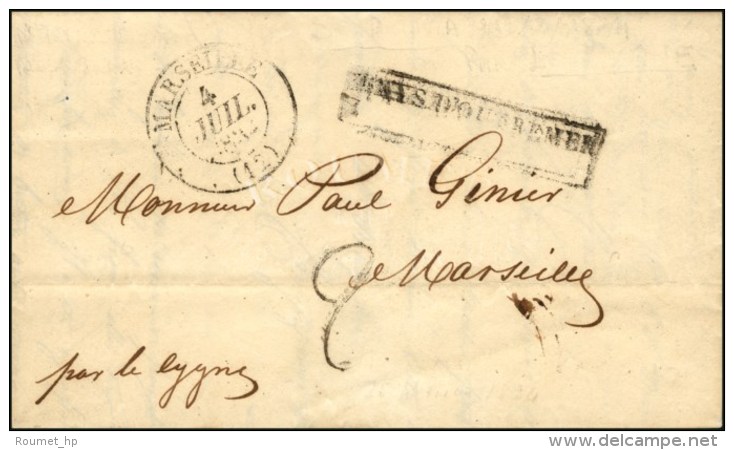 MARSEILLE
4
JUIL.
(12)
PAYS D'OUTREMER
Monsieur Paul Gimier
Marseille
par le cygne
Roumet_hp
© delcampe.net